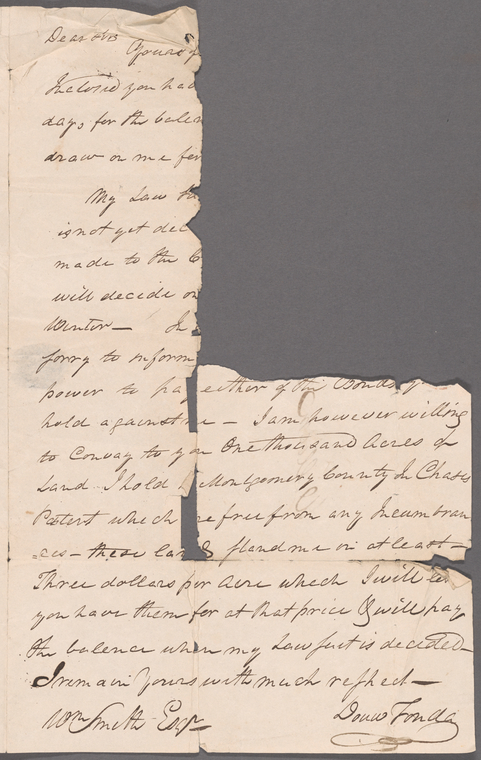 Dear Sir
Yours of
Inclosed you had
days, for the balen
draw on me for
My Law
is not yet dec
made to the C
will decide on
Winter — In
sorry to inform
power to pay either of the Bonds you
hold against me — I am however willing
to Convay to you One thousand Acres of
Land I hold in Montgomery County In Chases
Patent which are free from any Incumbran
ces — these lands stand me in at least —
Three dollars per Acre which I will let
you have them for at that price & will pay
the balence when my Law suit is decided —
I remain Yours with much respect —
Wm Smith Esqr — Douw Fonda